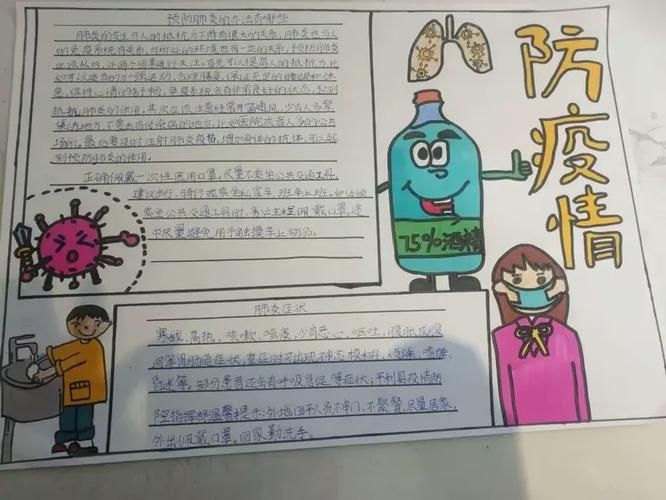 预防肺炎的办法有哪些
肺炎的发生与人的抵抗力下降有很大的关系,肺炎也与人
的免疫系统有关系,与所处的环境也有一定的关系,预防肺炎
应该从内、外两个因素进行关注。首先可以提高人的抵抗力,比
如可以适当的加强运动,合理膳食,保证充足的睡眠和休
息,保持心情的舒畅,免疫系统会有非常良好的状态,起到
抵抗肺炎的作用,其次应该注意经常开窗通风,少去人多聚
集的地方,不要去有传染病的地方,比如医院或者人多的公共
场所。最后要及时注射肺炎疫苗,增加身体的抗体,可以起
到预防肺炎的作用。
正确佩戴一次性医用口罩,尽量不乘坐公共交通工具,
建议步行、骑行或乘坐私家车、班车上班。如必须
乘坐公共交通工具时,务必全程佩戴口罩,途
中尽量避免用手触摸车上物品。
防疫情
75%酒精
肺炎症状
寒战、高热、咳嗽、咳痰,少有恶心、呕吐,腹胀或腹
泻等胃肠道症状,重症时可出现神志模糊、烦躁、嗜睡、
昏迷等。部分患者还会有呼吸急促等症状;平利县疫情防
控指挥部温馨提示:外地回平人员不串门、不聚餐,尽量居家,
外出佩戴口罩。回家勤洗手。